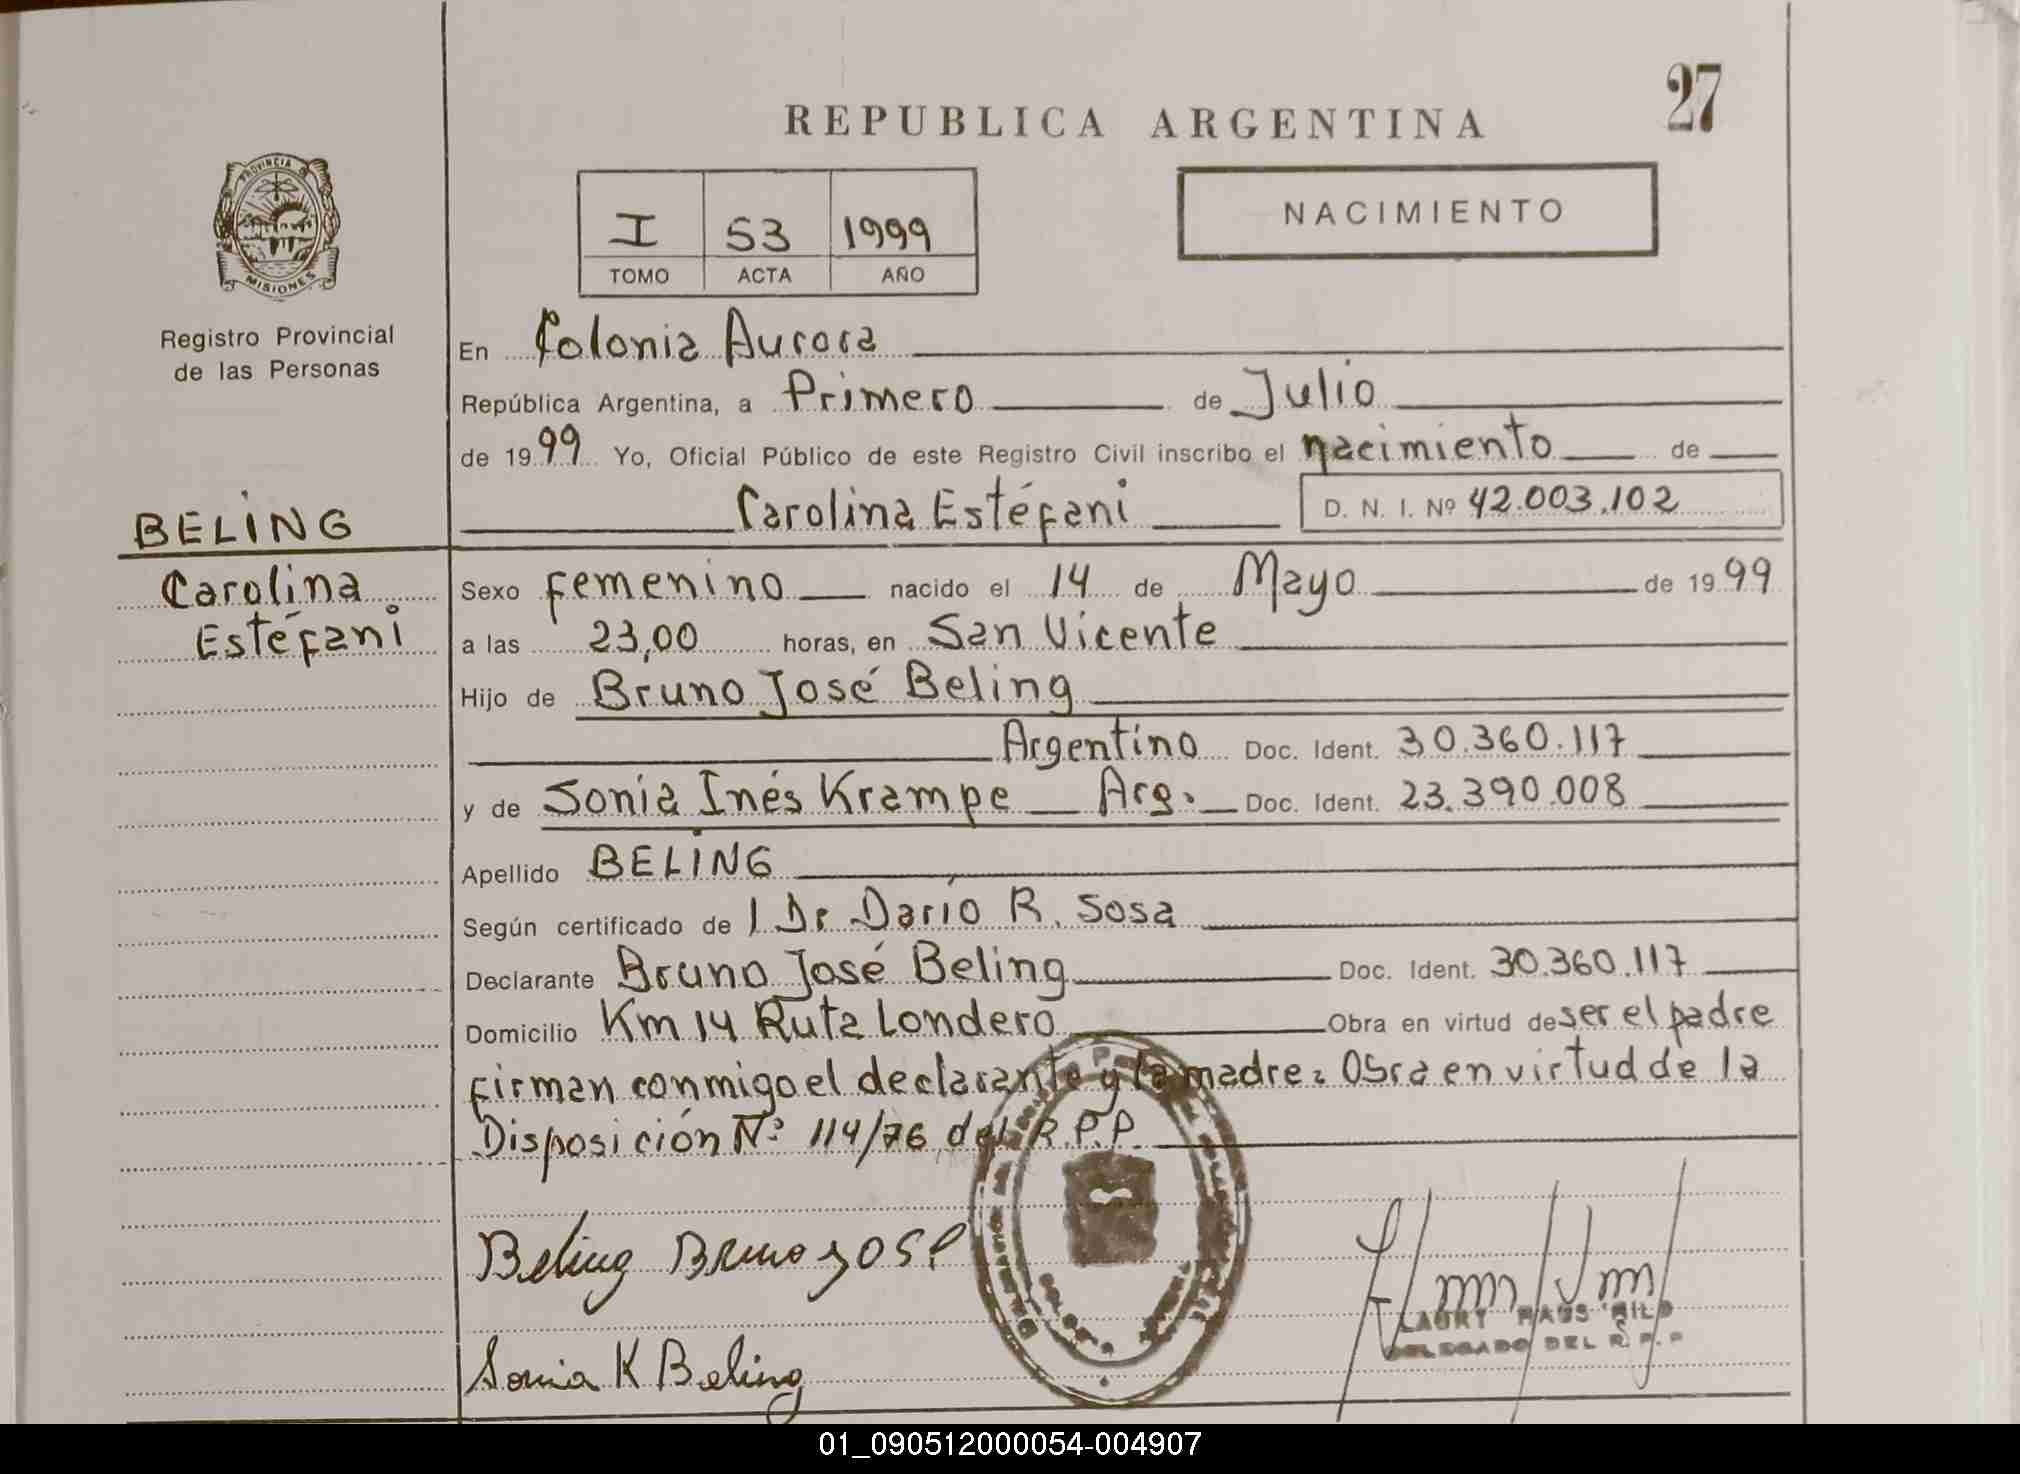 27
REPUBLICA ARGENTINA
PROVINCIA
MISIONES
Registro Provincial
de las Personas
I 53 1999
TOMO ACTA AÑO
NACIMIENTO
BELING
Carolina
Estéfani
En Colonia Aurora
República Argentina, a Primero de Julio
de 1999 Yo, Oficial Público de este Registro Civil inscribo el nacimiento de
Carolina Estéfani D. N. I. Nº 42.003.102
Sexo femenino nacido el 14 de Mayo de 1999
a las 23,00 horas, en San Vicente
Hijo de Bruno José Beling
Argentino Doc. Ident. 30.360.117
y de Sonia Inés Krampe Arg. Doc. Ident. 23.390.008
Apellido BELING
Según certificado de l Dr Darío R. Sosa
Declarante Bruno José Beling Doc. Ident. 30.360.117
Domicilio Km 14 Ruta Londero Obra en virtud de ser el padre
firman conmigo el declarante y la madre. Obra en virtud de la
Disposición Nº 114/76 del R.P.P.
Beling Bruno José
Sonia K Beling
LAURY
DELEGADO DEL R.P.P
01_090512000054-004907